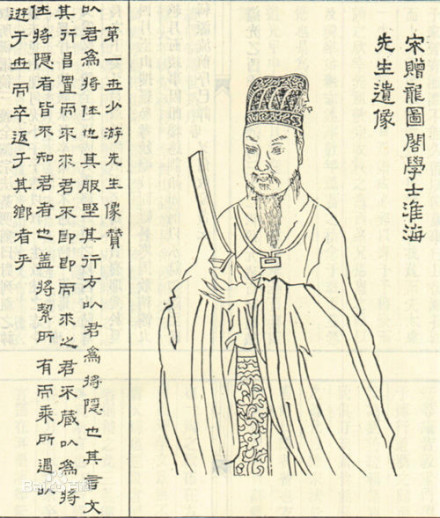 宋贈龍圖閣學士淮海
先生遺像
第一世少游先生像贊
以君為將仕也其服野其行方以君為將隱也其言文
其行昌置而不求君不即即而求之君不藏以為將
仕將隱者皆不知君者也蓋將絜所有而乘所遇以
遊于世而卒返于其鄉者乎